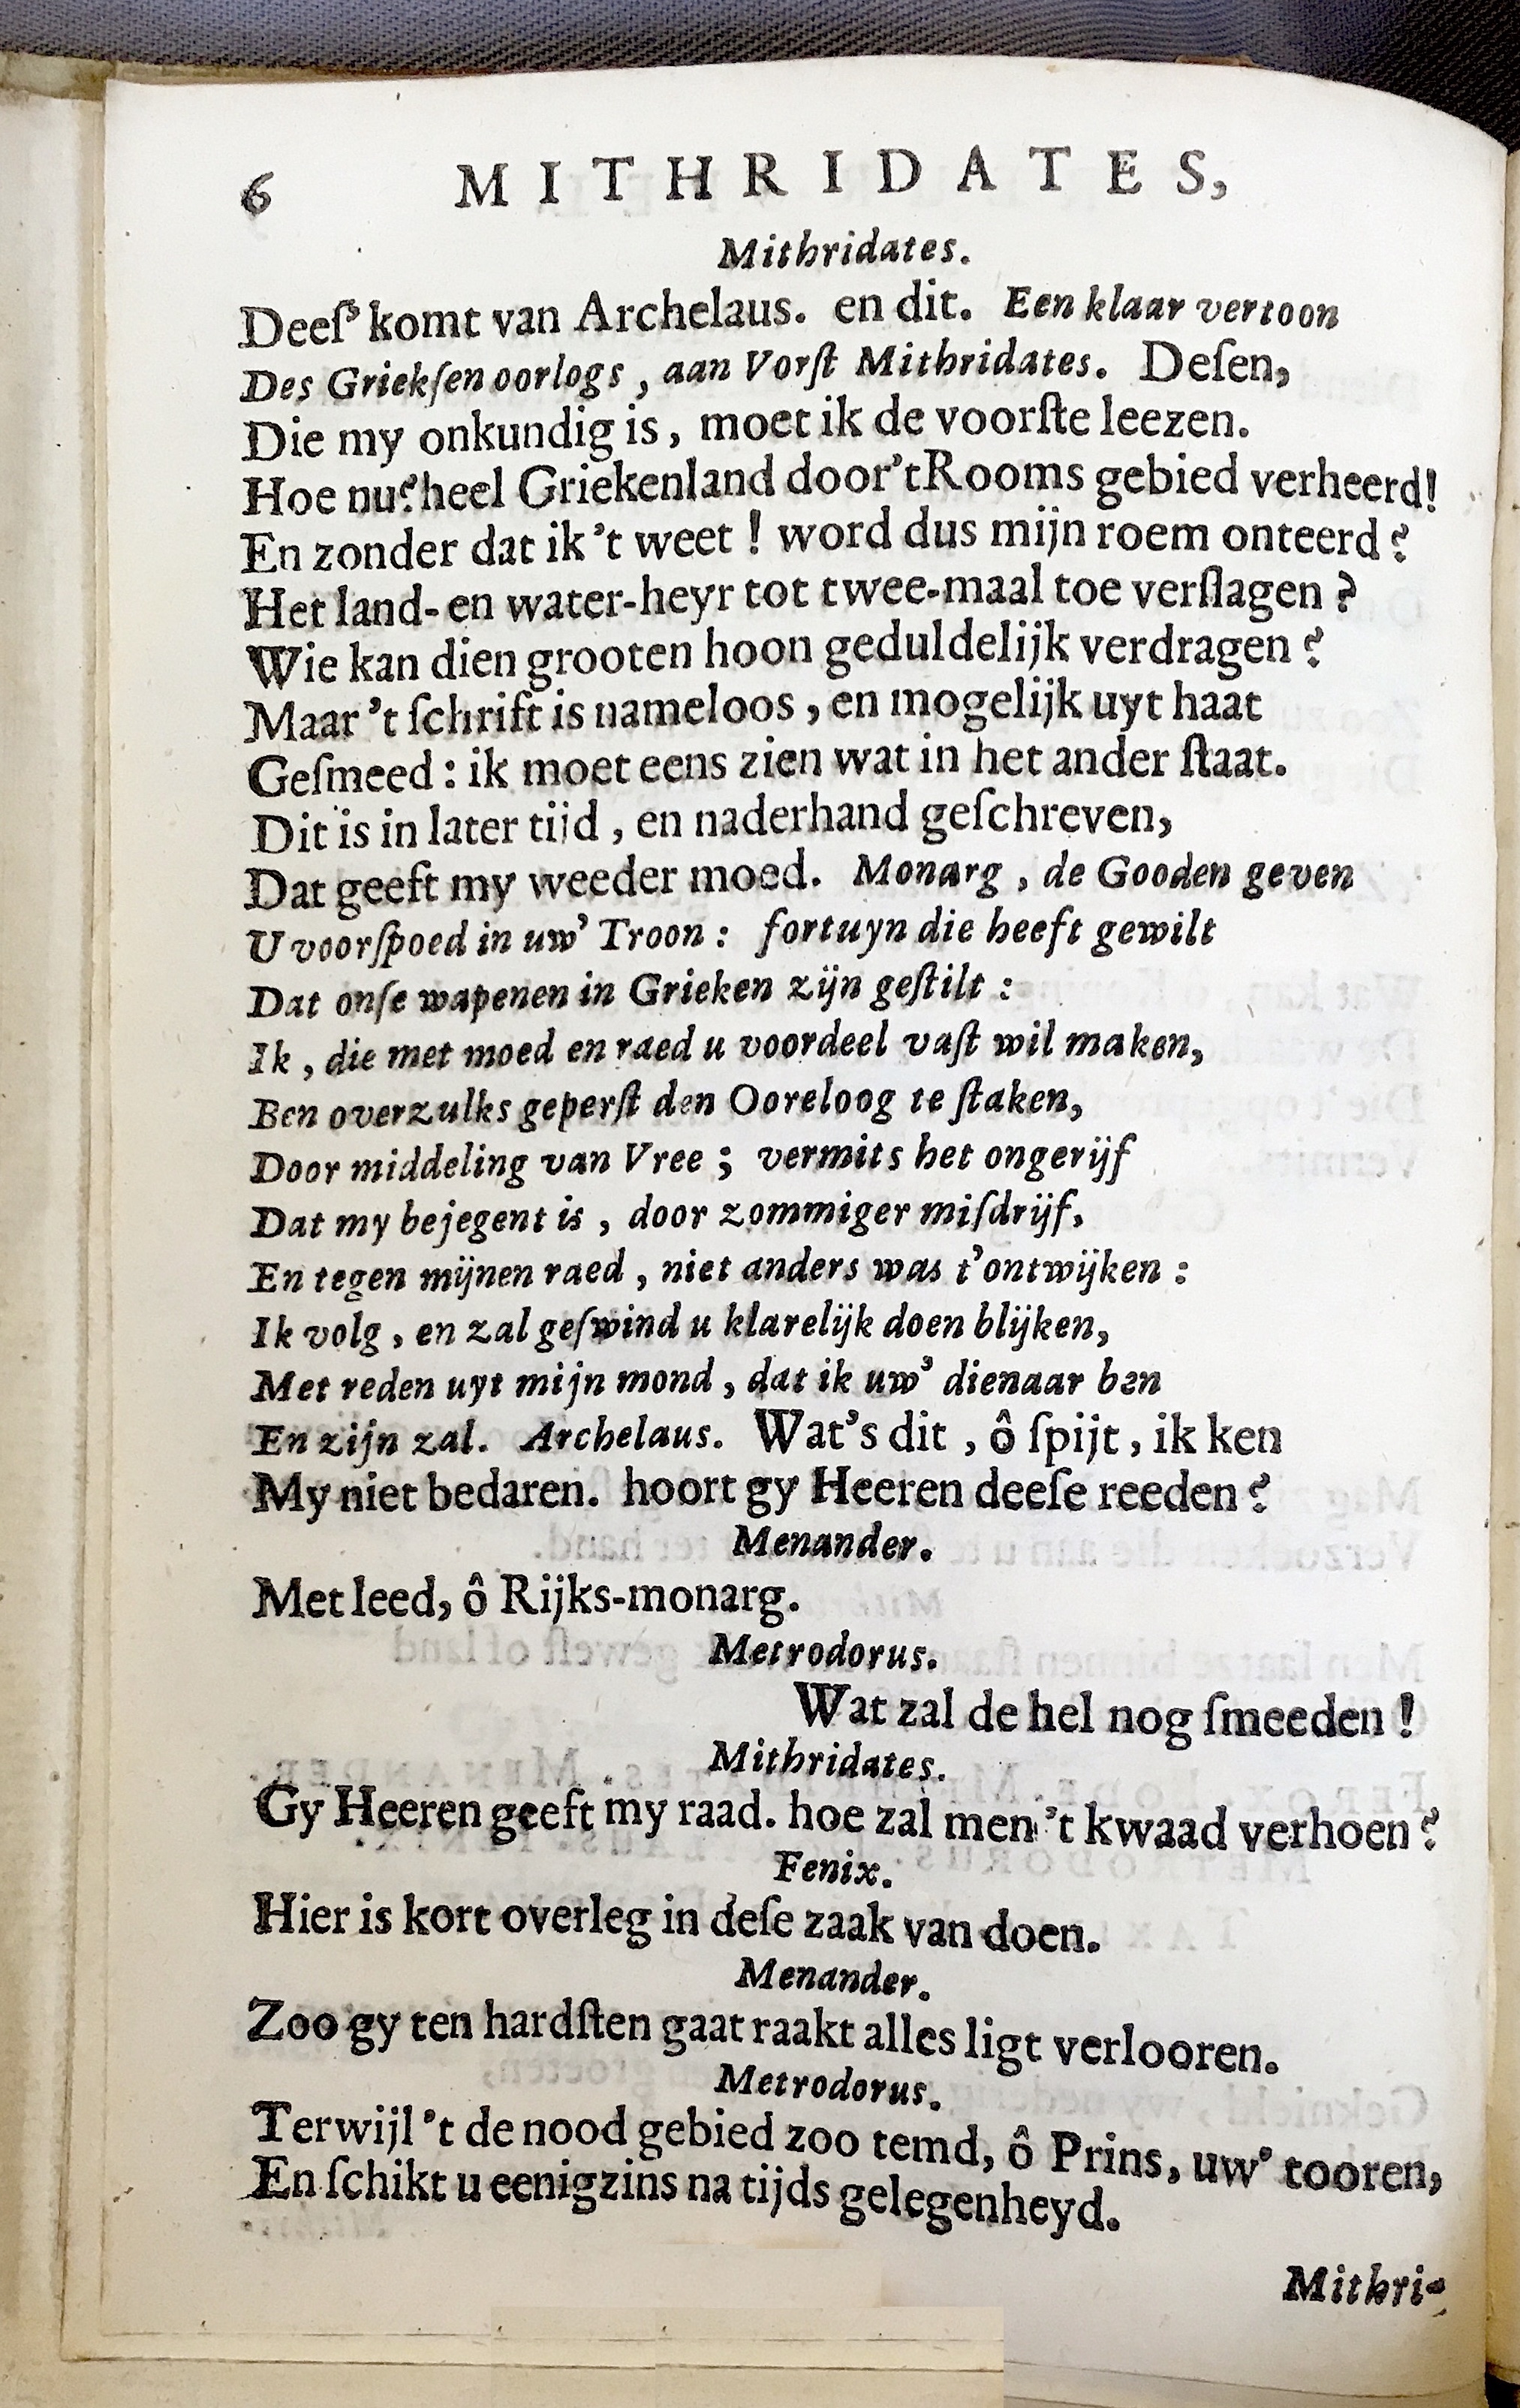 6 MITHRIDATES,
Mithridates.
Deeſ’ komt van Archelaus. en dit. Een klaar vertoon
Des Griekſen oorlogs, aan Vorſt Mithridates. Deſen,
Die my onkundig is, moet ik de voorſte leezen.
Hoe nu? heel Griekenland door ’t Rooms gebied verheerd!
En zonder dat ik ’t weet! word dus mijn roem onteerd?
Het land- en water-heyr tot twee-maal toe verſlagen?
Wie kan dien grooten hoon geduldelijk verdragen?
Maar ’t ſchrift is nameloos, en mogelijk uyt haat
Geſmeed: ik moet eens zien wat in het ander ſtaat.
Dit is in later tijd, en naderhand geſchreven,
Dat geeft my weeder moed. Monarg, de Gooden geven
U voorſpoed in uw’ Troon: fortuyn die heeft gewilt
Dat onſe wapenen in Grieken zijn geſtilt:
Ik, die met moed en raed u voordeel vaſt wil maken,
Ben overzulks geperſt den Ooreloog te ſtaken,
Door middeling van Vree; vermits het ongerijf
Dat my bejegent is, door zommiger miſdrijf,
En tegen mijnen raed, niet anders was t’ontwijken:
Ik volg, en zal geſwind u klarelijk doen blijken,
Met reden uyt mijn mond, dat ik uw’ dienaar ben
En zijn zal. Archelaus. Wat’s dit, ô ſpijt, ik ken
My niet bedaren. hoort gy Heeren deeſe reeden?
Menander.
Met leed, ô Rijks-monarg.
Metrodorus.
Wat zal de hel nog ſmeeden!
Mithridates.
Gy Heeren geeft my raad. hoe zal men ’t kwaad verhoen?
Fenix.
Hier is kort overleg in deſe zaak van doen.
Menander.
Zoo gy ten hardſten gaat raakt alles ligt verlooren.
Metrodorus.
Terwijl ’t de nood gebied zoo temd, ô Prins, uw’ tooren,
En ſchikt u eenigzins na tijds gelegenheyd.
Mithri-